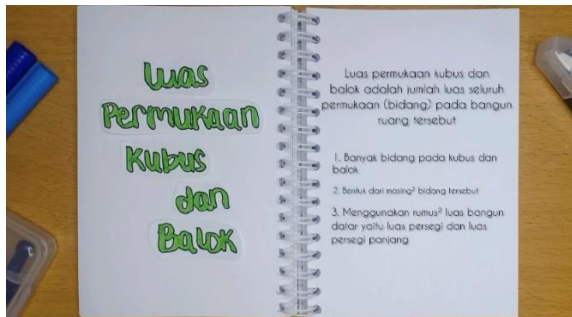 Luas
Permukaan
Kubus
dan
Balok
Luas permukaan kubus dan
balok adalah jumlah luas seluruh
permukaan (bidang) pada bangun
ruang tersebut
1. Banyak bidang pada kubus dan
balok
2. Bentuk dari masing² bidang tersebut
3. Menggunakan rumus² luas bangun
datar yaitu luas persegi dan luas
persegi panjang